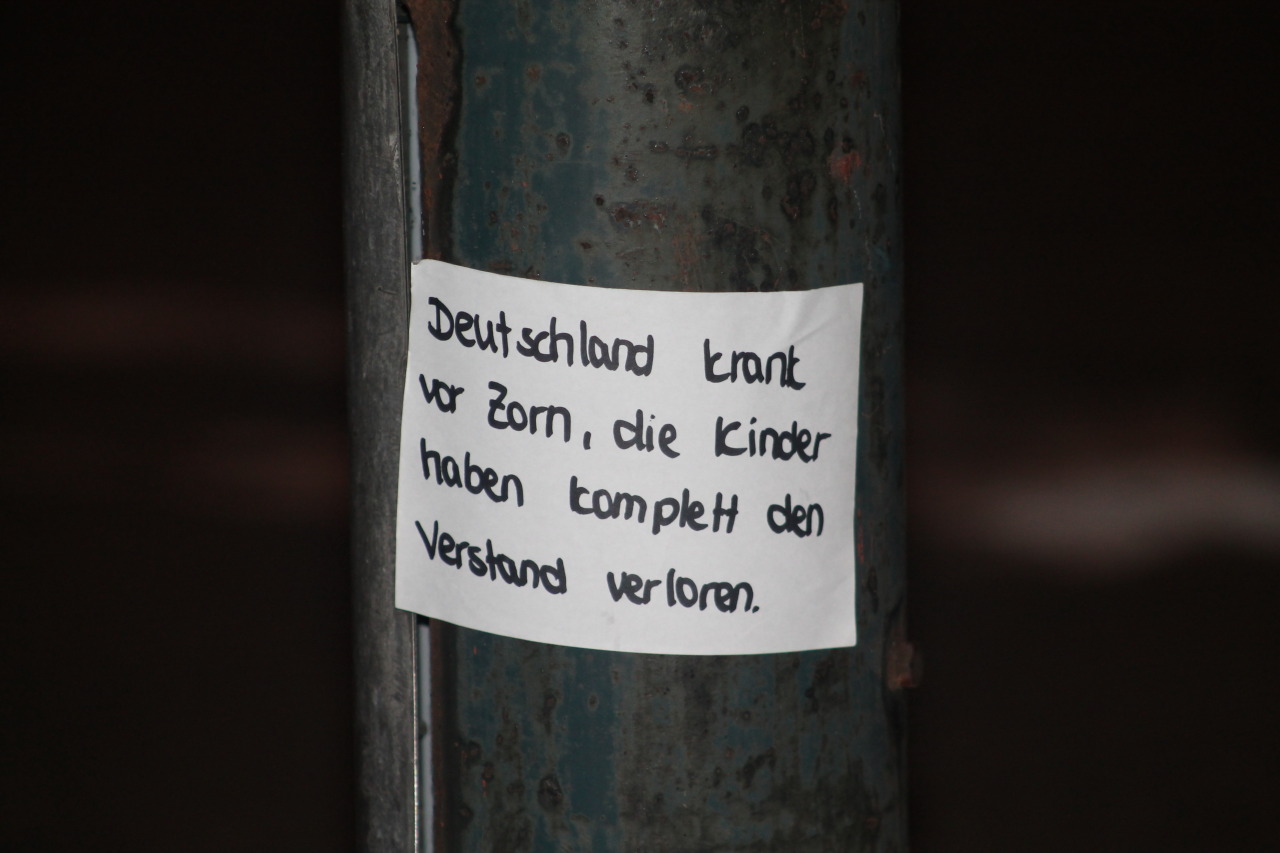 Deutschland krank
vor Zorn, die Kinder
haben komplett den
Verstand verloren.